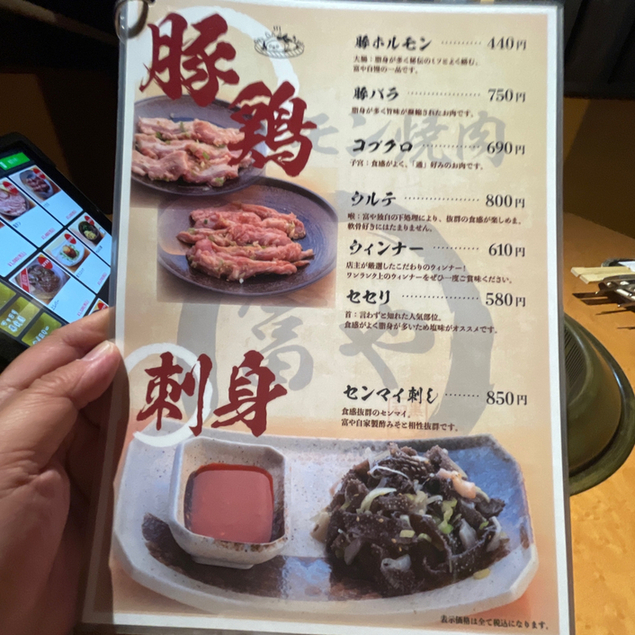 豚
鶏
豚ホルモン ………… 440円
大腸：脂身が多く秘伝のミソとよく絡む。
富や自慢の一品です。
豚バラ ………… 750円
脂身が多く旨味が凝縮されたお肉です。
コブクロ ………… 690円
子宮：食感がよく、「通」好みのお肉です。
ウルテ ………… 800円
喉：富や独自の下処理により、抜群の食感が楽しめます。
軟骨好きにはたまりません。
ウィンナー ………… 610円
店主が厳選したこだわりのウィンナー！
ワンランク上のウィンナーをぜひ一度ご賞味ください。
セセリ ………… 580円
首：言わずと知れた人気部位。
食感がよく脂身が多いため塩味がオススメです。
モン焼肉
富や
刺身
センマイ刺し ……… 850円
食感抜群のセンマイ。
富や自家製酢みそと相性抜群です。
表示価格は全て税込になります。